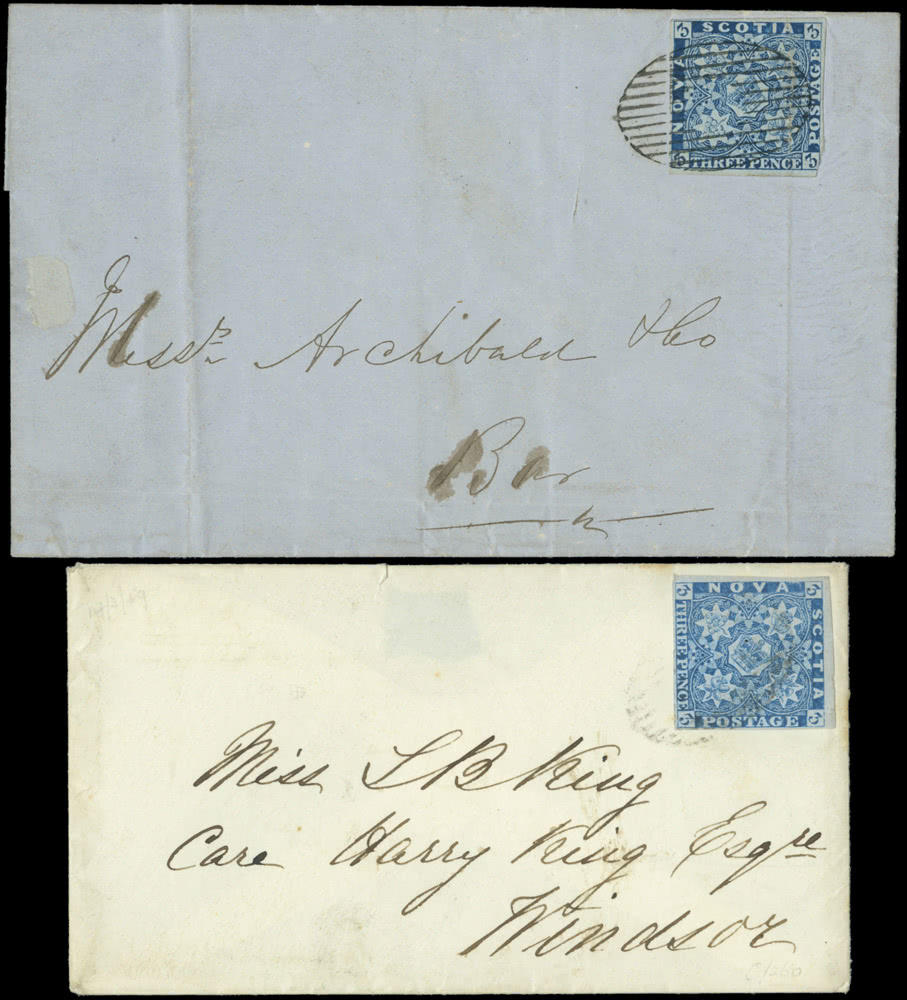 NOVA SCOTIA POSTAGE THREE PENCE
3 3 3 3
Messrs Archibald & Co
NOVA SCOTIA POSTAGE THREE PENCE
3 3 3 3
Miss L B King
Care Harry King Esqre
Windsor